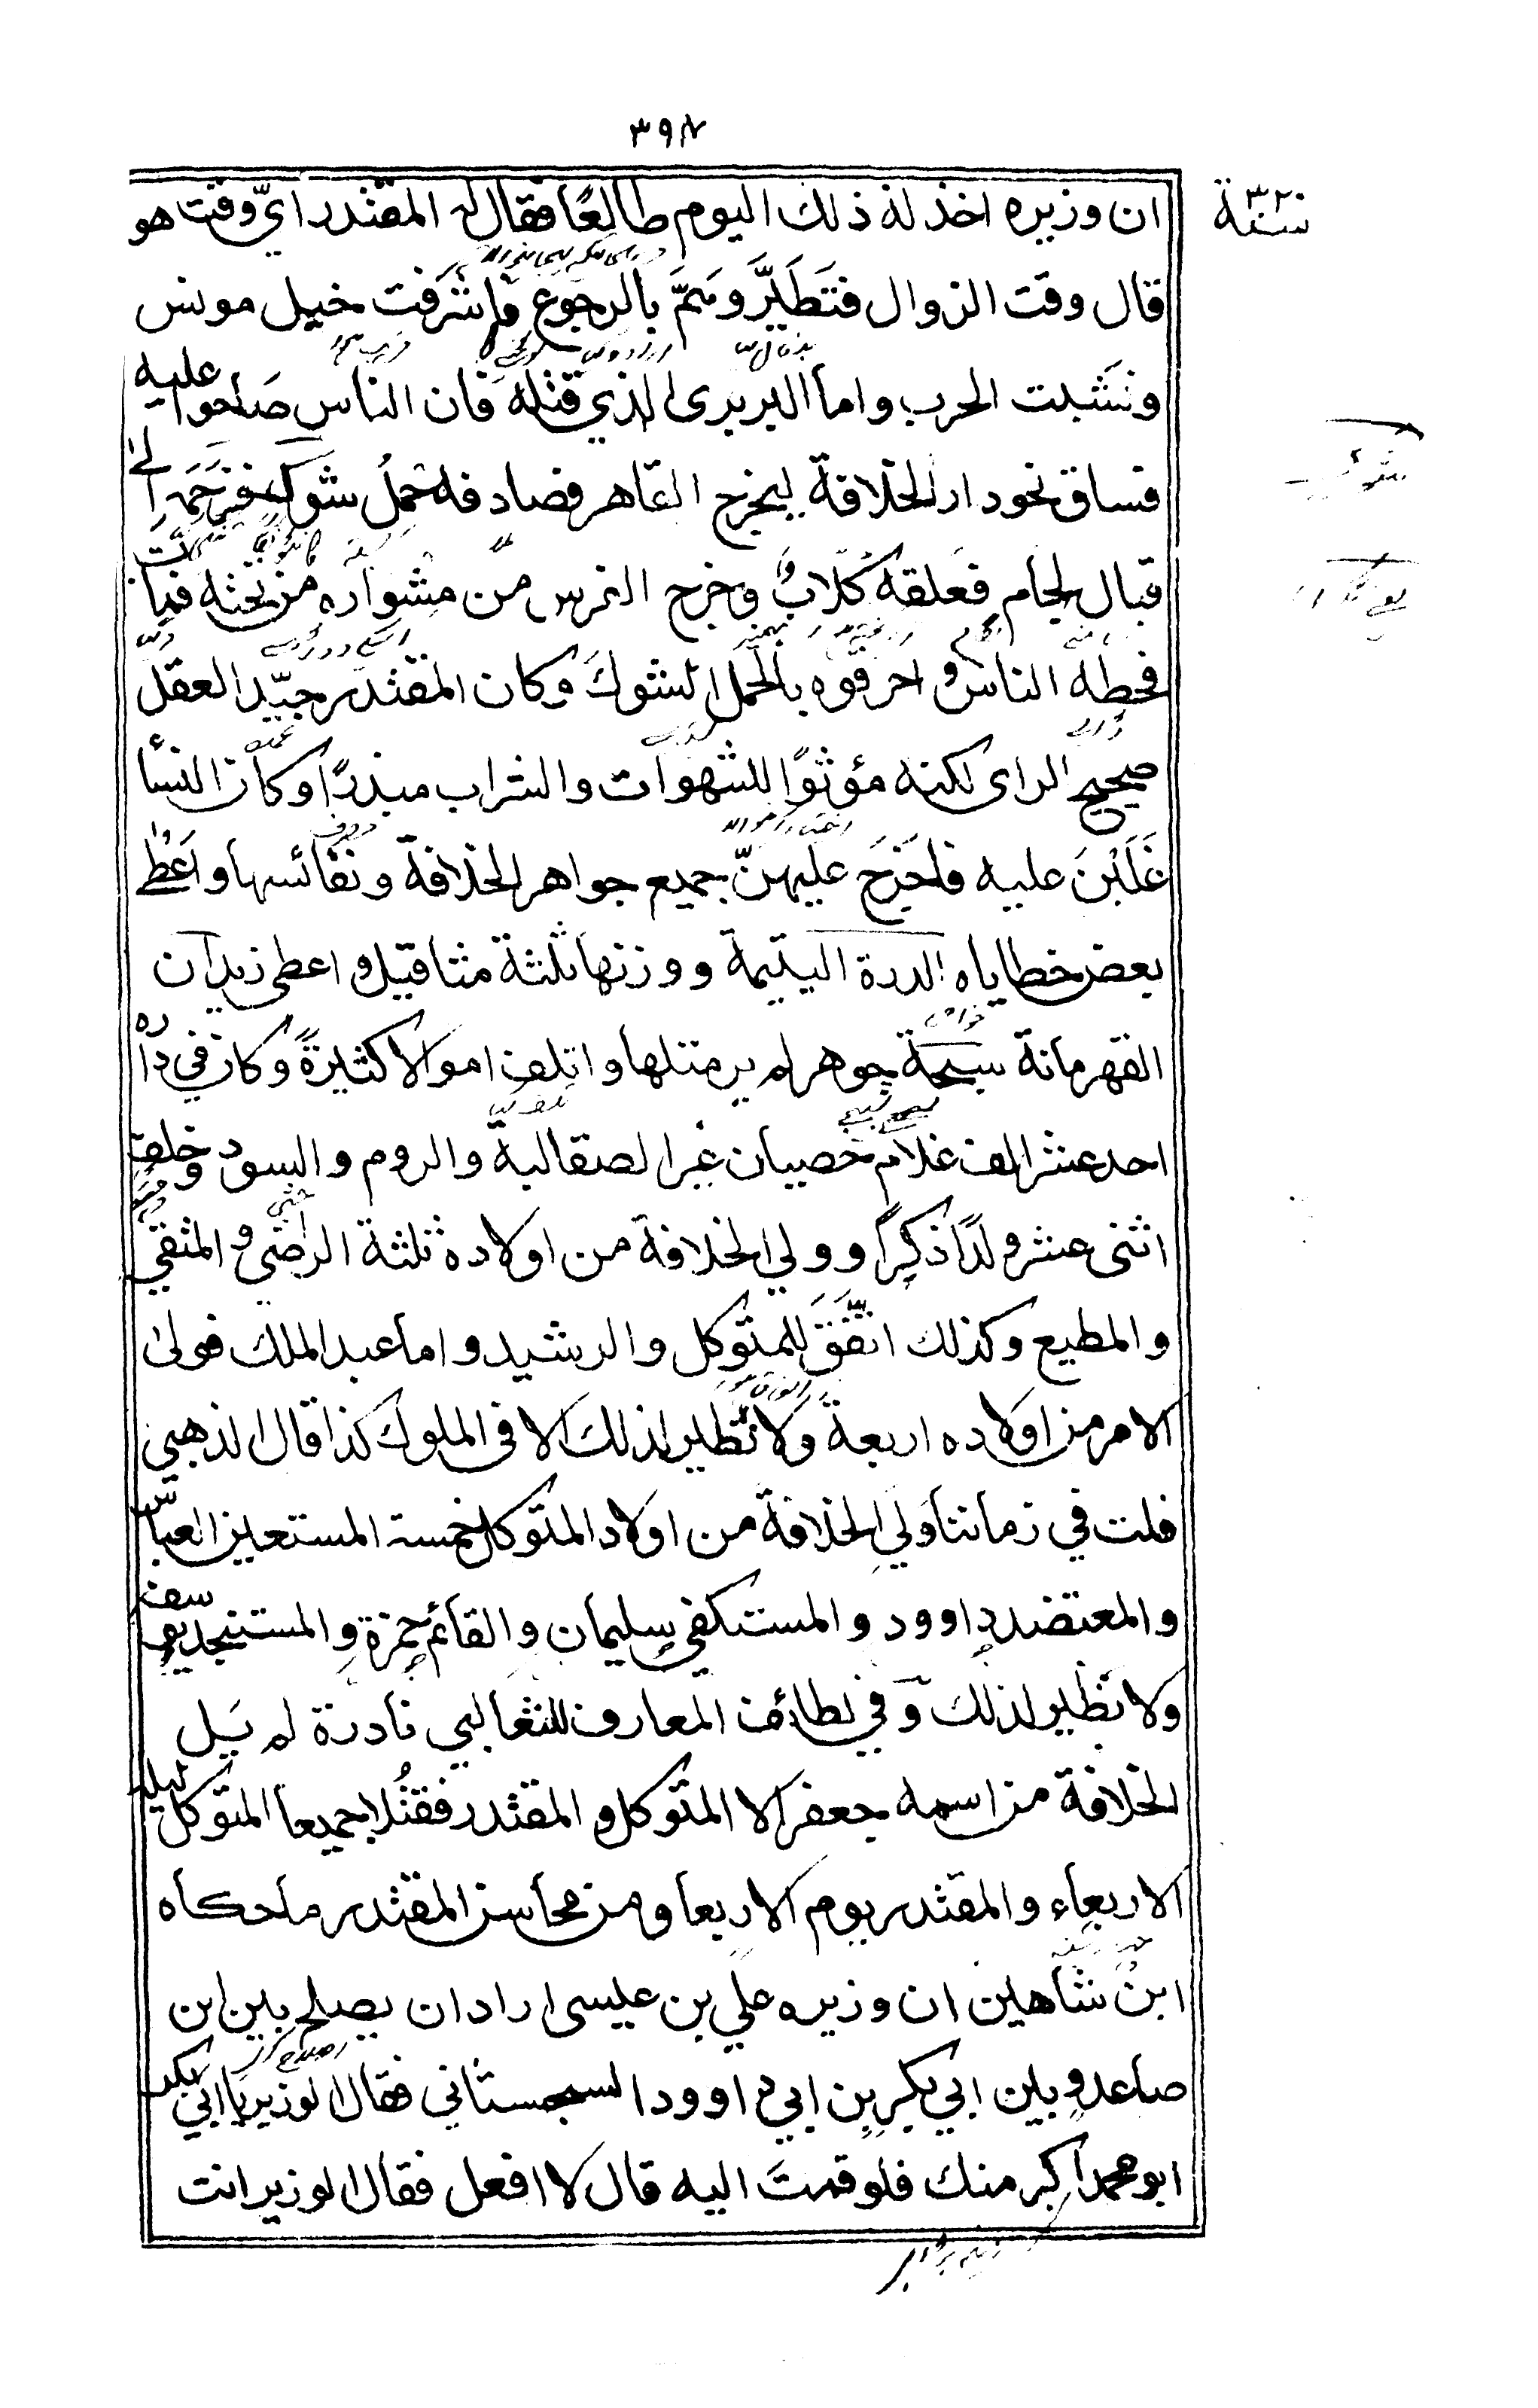 ٣٩٨
سنة ٣٢٠
ان وزيره اخذ له ذلك اليوم طالعًا فقال له المقتدر ايّ وقت هو
قال وقت الزوال فتَطَيَّرَ وهَمَّ بالرجوع فاشرفت خيل مونس
ونَشبت الحرب واما البربرى الذي قتله فان الناس صَاحوا عليه
فساق نحو دار الخلافة ليخرج القاهر فصادفه حملُ شوك فزَحَمَه الىٰ
قبال لحام فعَلقه كُلّابٌ وخرج الفرس من مشواره من تحته فمات
فحطه الناس و احرقوه بالحمل الشوك وكان المقتدر جيّد العقل
صحيح الراى لكنه مؤثرًا للشهوات والشراب مبذرًا وكان النسأ
غَلَبْنَ عليه فاَخرَجَ عليهنّ جميع جواهر الخلافة ونفائسها واَعطٰے
بعض خطاياه الدرة اليتيمة ووزنها ثلثة مثاقيل و اعطى زيدان
القهرمانة سبحة جوهر لم ير مثلها واتلف اموالا كثيرةً وكان في داره
احد عشر الف غلام خصيان غير الصقالبة والروم والسود وخلف
اثنى عشر ولدًا ذكرًا وولي الخلافة من اولاده ثلثة الراضي و المتقي
والمطيع وكذلك اتَّفَقَ للمتوكل والرشيد واما عبد الملك فولى
الامر من اولاده اربعة ولا نظير لذلك الا فى الملوك كذا قال الذهبي
قلت في زماننا وَلي الخلافة من اولاد المتوكل خمسة المستعين العباس
والمعتضد داوود والمستكفي سليمان والقائم حمزة والمستنجد يوسف
ولا نظير لذلك وفي لطائف المعارف للثعالبي نادرة لم يَل
الخلافة من اسمه جعفر الا المتوكل و المقتدر فقتُلا جميعا المتوكل ليلة
الاربعاء والمقتدر يوم الاربعا ومن محاسن المقتدر ما حكاه
ابن شاهين ان وزيره علي بن عيسى اراد ان يصلح بين ابن
صاعد وبين ابي بكر بن ابي داوود السجستاني فقال الوزير يا ابي بكر
ابو محمد اكبر منك فلو قمتَ اليه قال لا افعل فقال الوزير انت